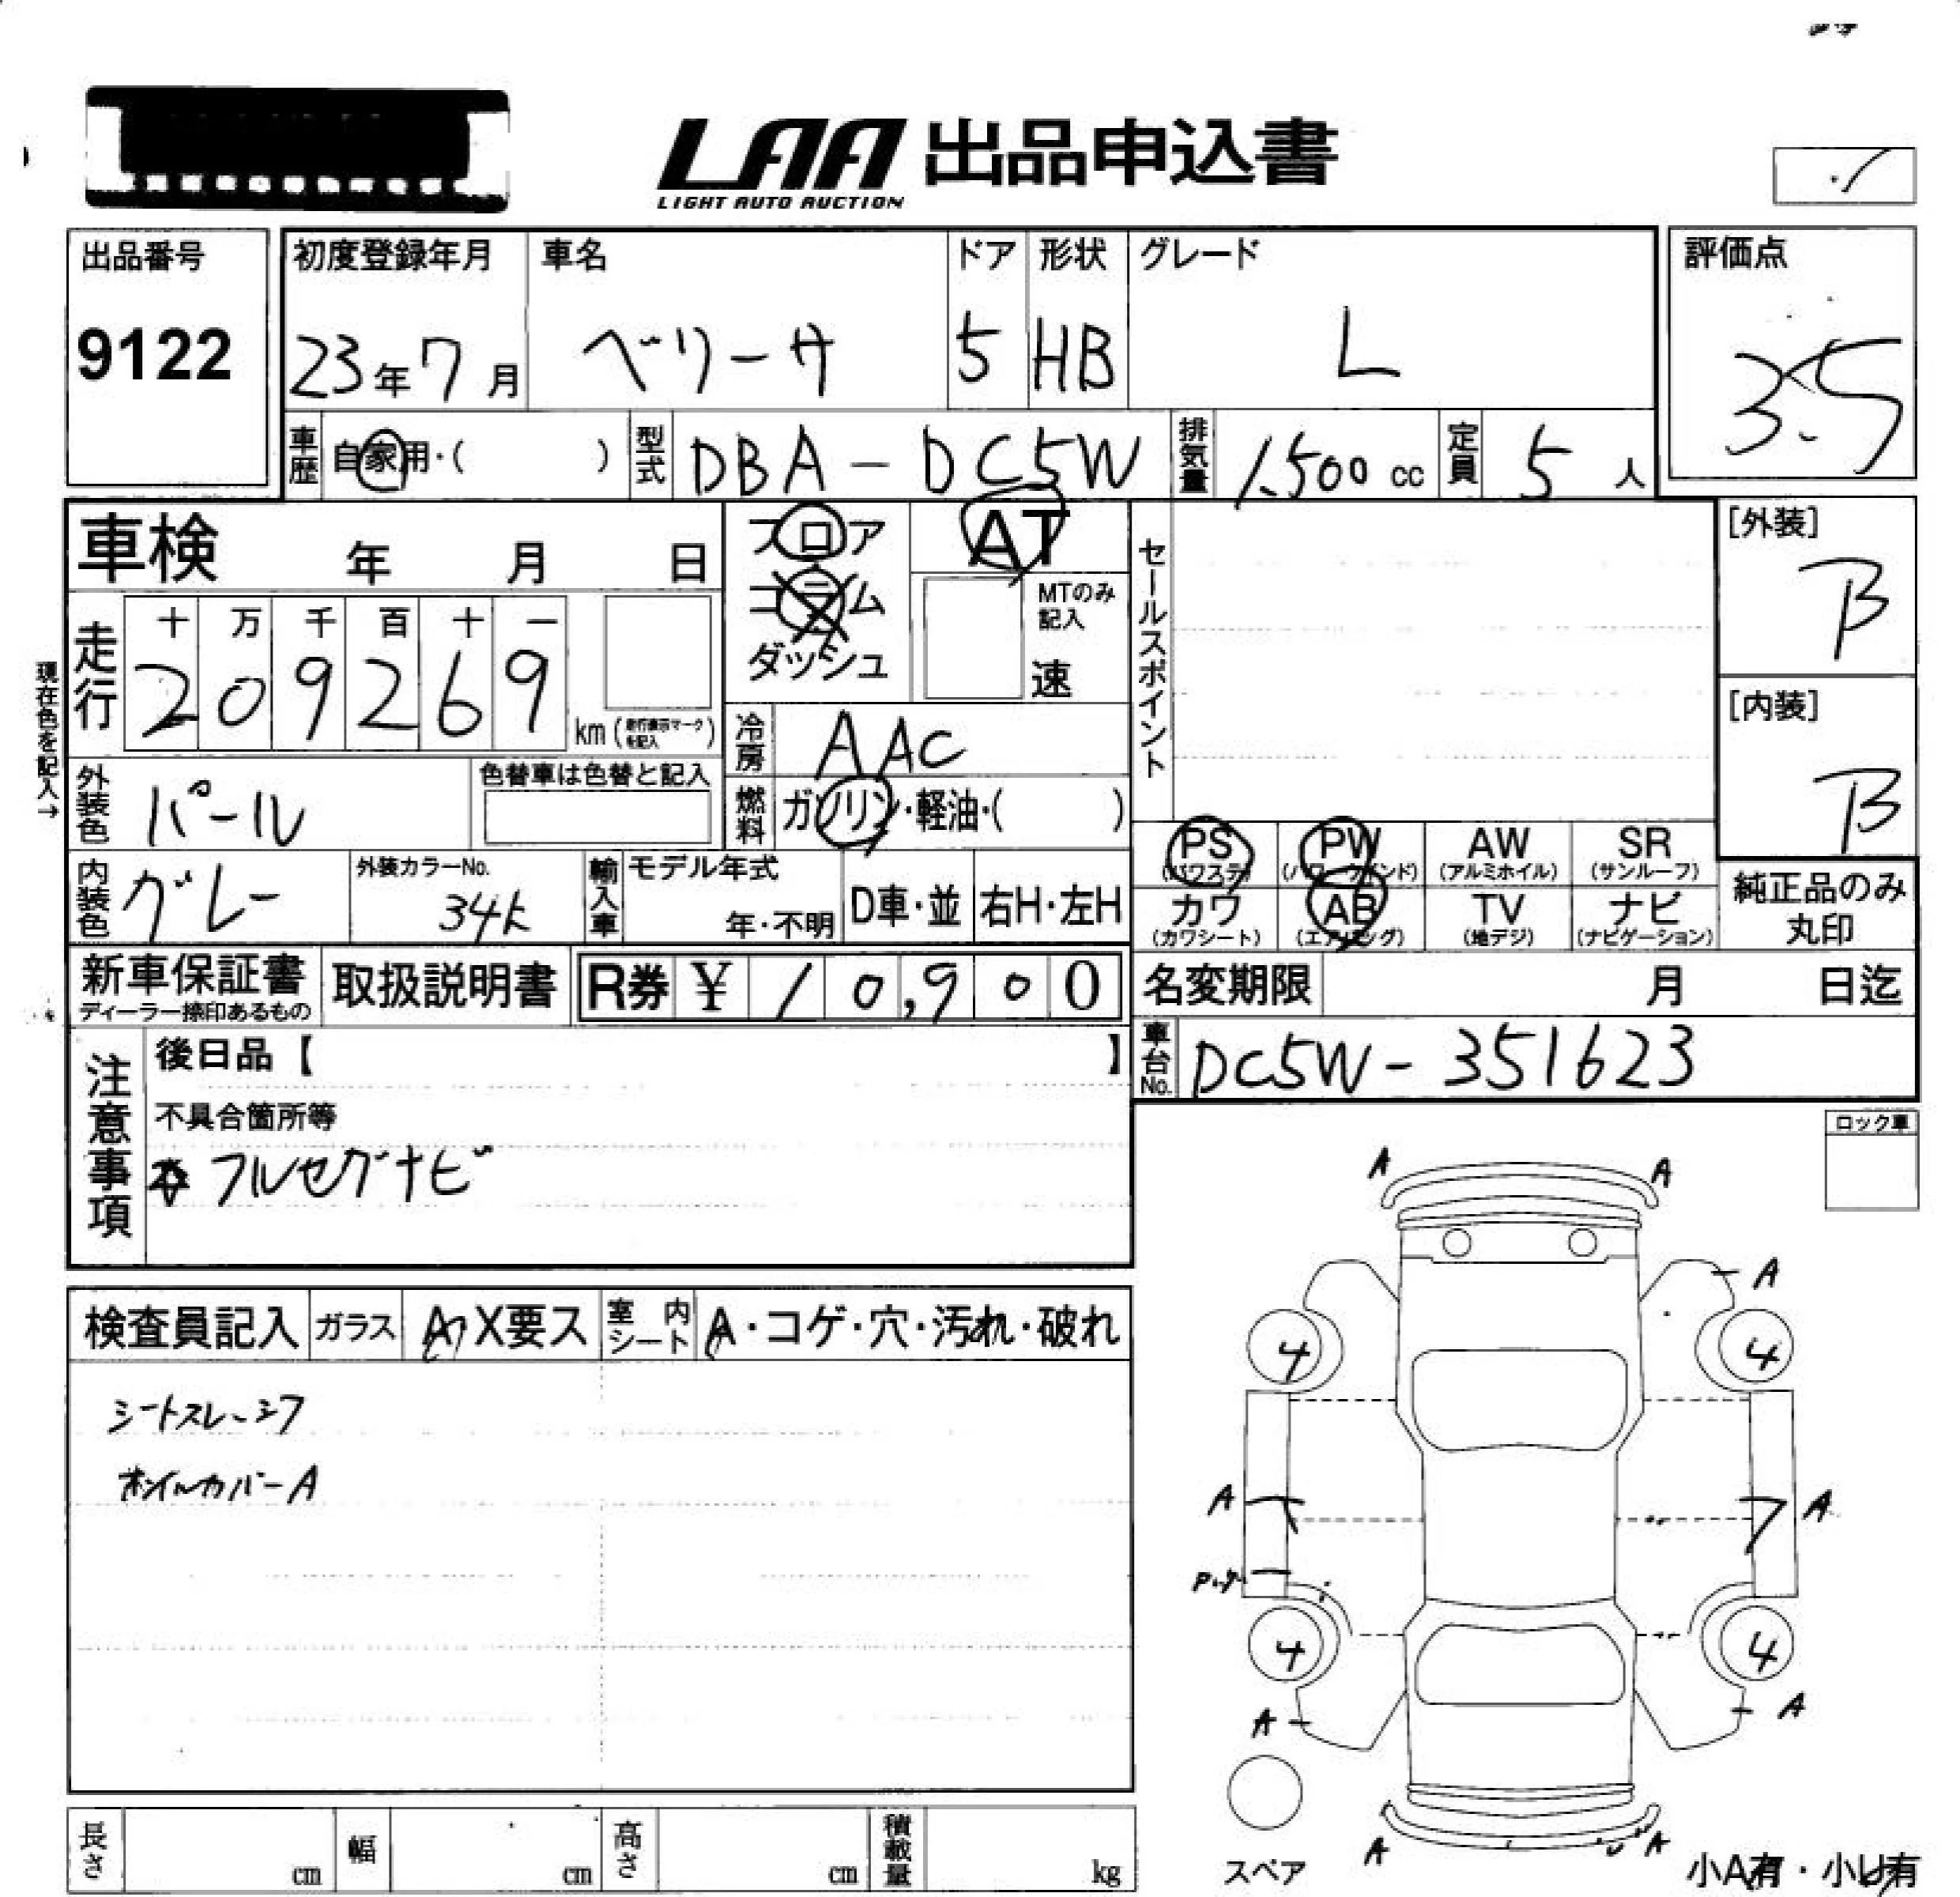 LAA 出品申込書
LIGHT AUTO AUCTION
出品番号
9122
初度登録年月
23年7月
車名
ベリーサ
ドア
5
形状
HB
グレード
L
評価点
3.5
車歴 自家用・( )
型式 DBA-DC5W
排気量 1.500 cc
定員 5 人
車検 年 月 日
フロア
コラム
ダッシュ
AT
MTのみ記入
速
セールスポイント
[外装]
B
[内装]
B
現在色を記入→
走行
十 万 千 百 十 一
2 0 9 2 6 9
km (走行表示マークを記入)
冷房 AAC
外装色 パール
色替車は色替と記入
燃料 ガソリン・軽油・( )
PS (パワステ)
PW (パワーウインド)
AW (アルミホイル)
SR (サンルーフ)
カワ (カワシート)
AB (エアバッグ)
TV (地デジ)
ナビ (ナビゲーション)
純正品のみ丸印
内装色 グレー
外装カラーNo.
34k
輸入車
モデル年式
年・不明
D車・並
右H・左H
新車保証書
ディーラー捺印あるもの
取扱説明書
R券 ¥ 10,900
名変期限 月 日迄
車台No. DC5W-351623
注意事項
後日品【 】
不具合箇所等
☆ フルセグナビ
ロック車
検査員記入
ガラス A X要ス
室内シート A・コゲ・穴・汚れ・破れ
シートスレ、シワ
ホイルカバーA
A A
A
4 4
A A
4 4
A A
スペア
A A
小A有・小U有
長さ cm
幅 cm
高さ cm
積載量 kg